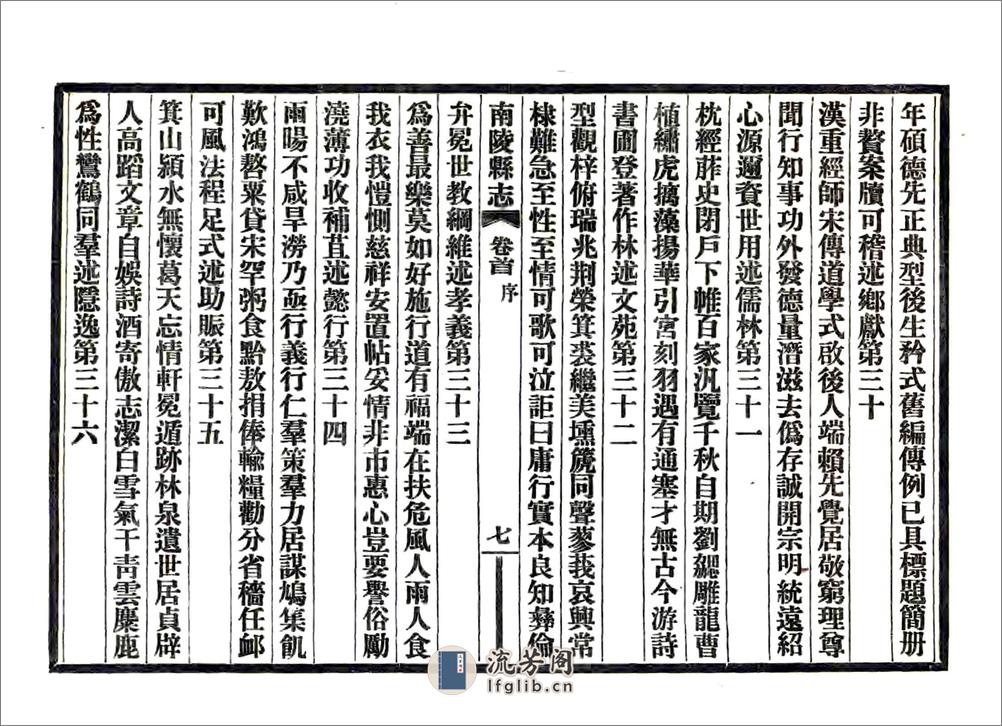 年碩德先正典型後生矜式舊編傳例已具標題簡册
非贅案牘可稽述鄉獻第三十
漢重經師宋傳道學式啟後人端賴先覺居敬窮理尊
聞行知事功外發德量潛滋去僞存誠開宗明統遠紹
心源邇資世用述儒林第三十一
枕經葄史閉戸下帷百家汎覽千秋自期劉勰雕龍曹
植繡虎摛藻揚華引宮刻羽遇有通塞才無古今游詩
書圃登著作林述文苑第三十二
型觀梓俯瑞兆荆榮箕裘繼美壎篪同聲蓼莪哀興常
棣難急至性至情可歌可泣詎曰庸行實本良知彝倫
南陵縣志
卷首
序
七
弁冕世教綱維述孝義第三十三
爲善最樂莫如好施行道有福端在扶危風人雨人食
我衣我愷惻慈祥安置帖妥情非市惠心豈要譽俗勵
澆薄功收補苴述懿行第三十四
雨暘不咸旱澇乃亟行義行仁羣策羣力居謀鳩集飢
歎鴻嗸粟貸宋罕粥食黔敖捐俸輸糧勸分省穡任卹
可風法程足式述助賑第三十五
箕山潁水無懷葛天忘情軒冕遁跡林泉遺世居貞辟
人高蹈文章自娛詩酒寄傲志潔白雪氣干靑雲麋鹿
爲性鸞鶴同羣述隱逸第三十六
流芳阁
lfglib.cn